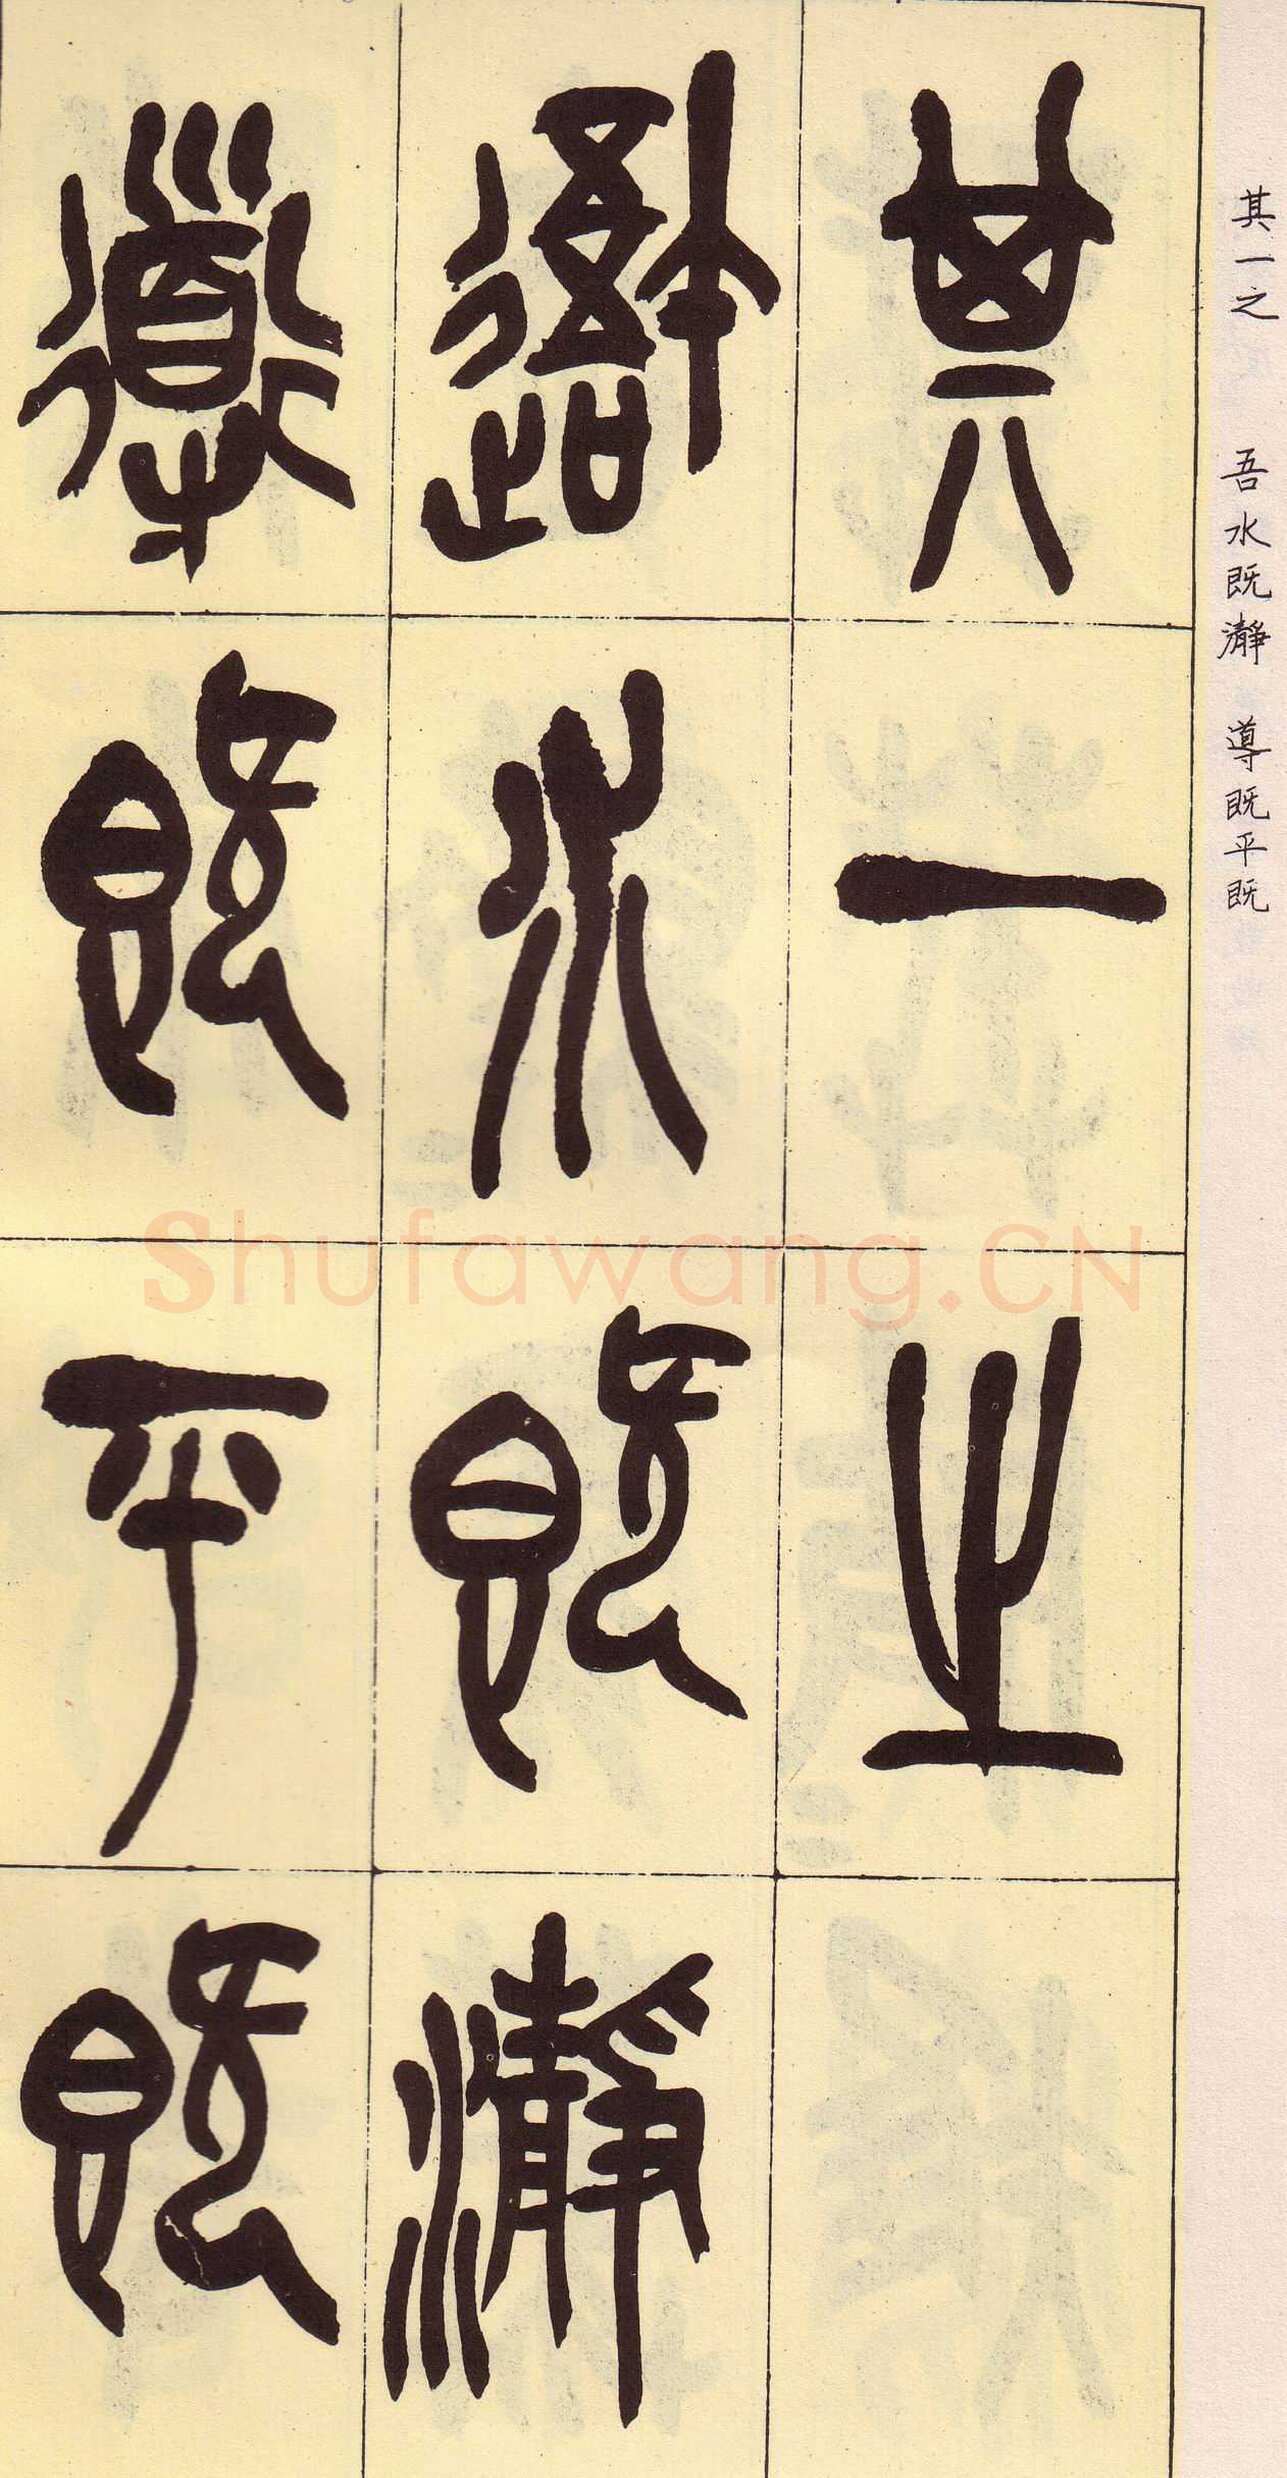 其一之
吾水既瀞
導既平既
其一之 吾水既瀞 導既平既
Shufawang.CN